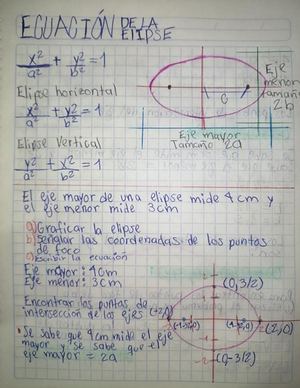 ECUACIÓN DE LA ELIPSE
x²/a² + y²/b² = 1
Elipse horizontal
x²/a² + y²/b² = 1
Elipse Vertical
y²/a² + x²/b² = 1
C
Eje menor tamaño 2b
Eje mayor
Tamaño 2a
El eje mayor de una elipse mide 4cm y
el eje menor mide 3cm
a) Graficar la elipse
b) Señalar las coordenadas de los puntos
de foco
c) Escribir la ecuación
Eje mayor: 4cm
Eje menor: 3cm
Encontrar los puntos de
intersección de los ejes
• Se sabe que 4cm mide el eje
mayor y se sabe que el
eje mayor = 2a
(0,3/2)
(2,0)
(0-3/2)